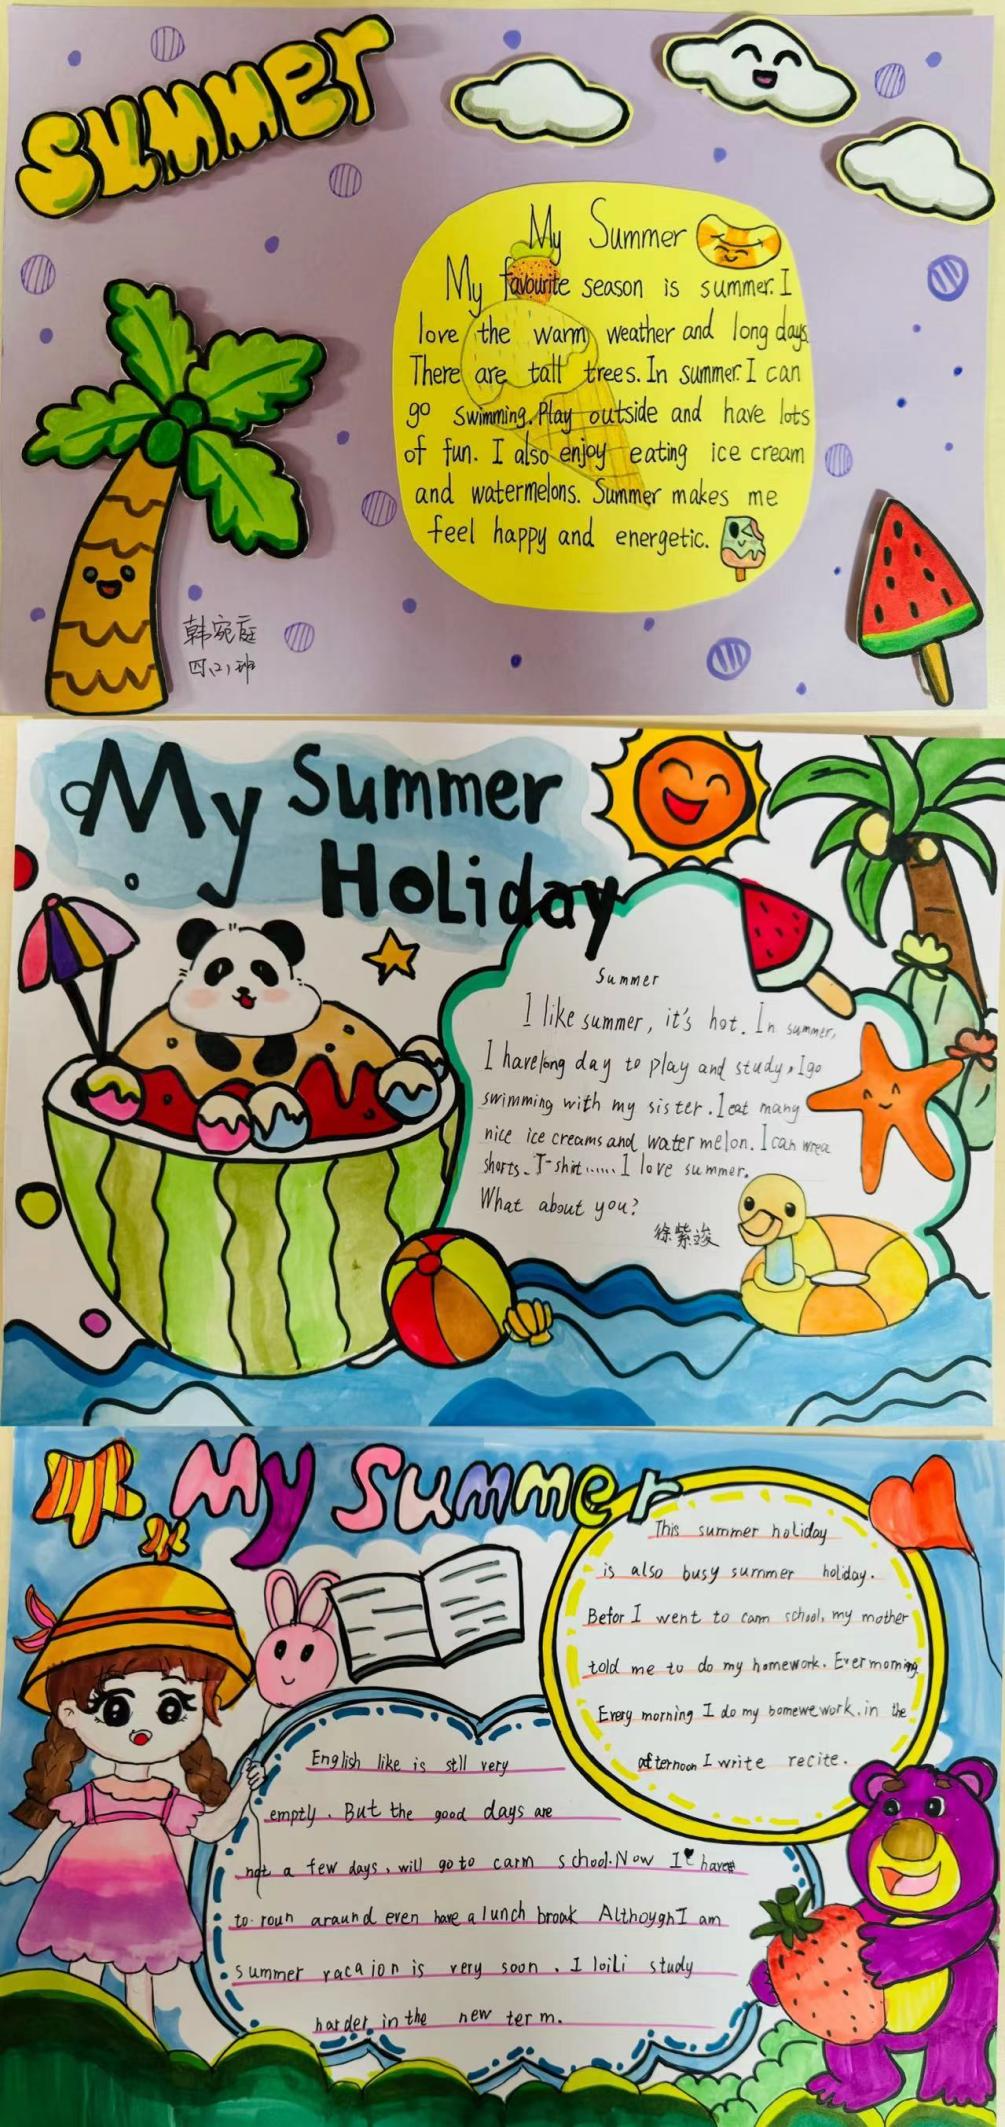 SUMMER
My Summer
My favourite season is summer. I
love the warm weather and long days.
There are tall trees. In summer. I can
go swimming. Play outside and have lots
of fun. I also enjoy eating ice cream
and watermelons. Summer makes me
feel happy and energetic.
韩宛庭
四(2)班
My Summer
Holiday
Summer
I like summer, it's hot. In summer,
I have long day to play and study, I go
swimming with my sister. I eat many
nice ice creams and water melon. I can wrea
shorts. T-shirt...... I love summer.
What about you?
徐紫竣
My Summer
This summer holiday
is also busy summer holiday.
Befor I went to carm school, my mother
told me to do my homework. Ever morning
Every morning I do my bomewework. in the
afternoon I write recite.
English like is stll very
empty. But the good days are
not a few days, will go to carm school. Now I have
to roun araund even have a lunch broak AlthoyghI am
summer racaion is very soon. I loili study
harder in the new term.